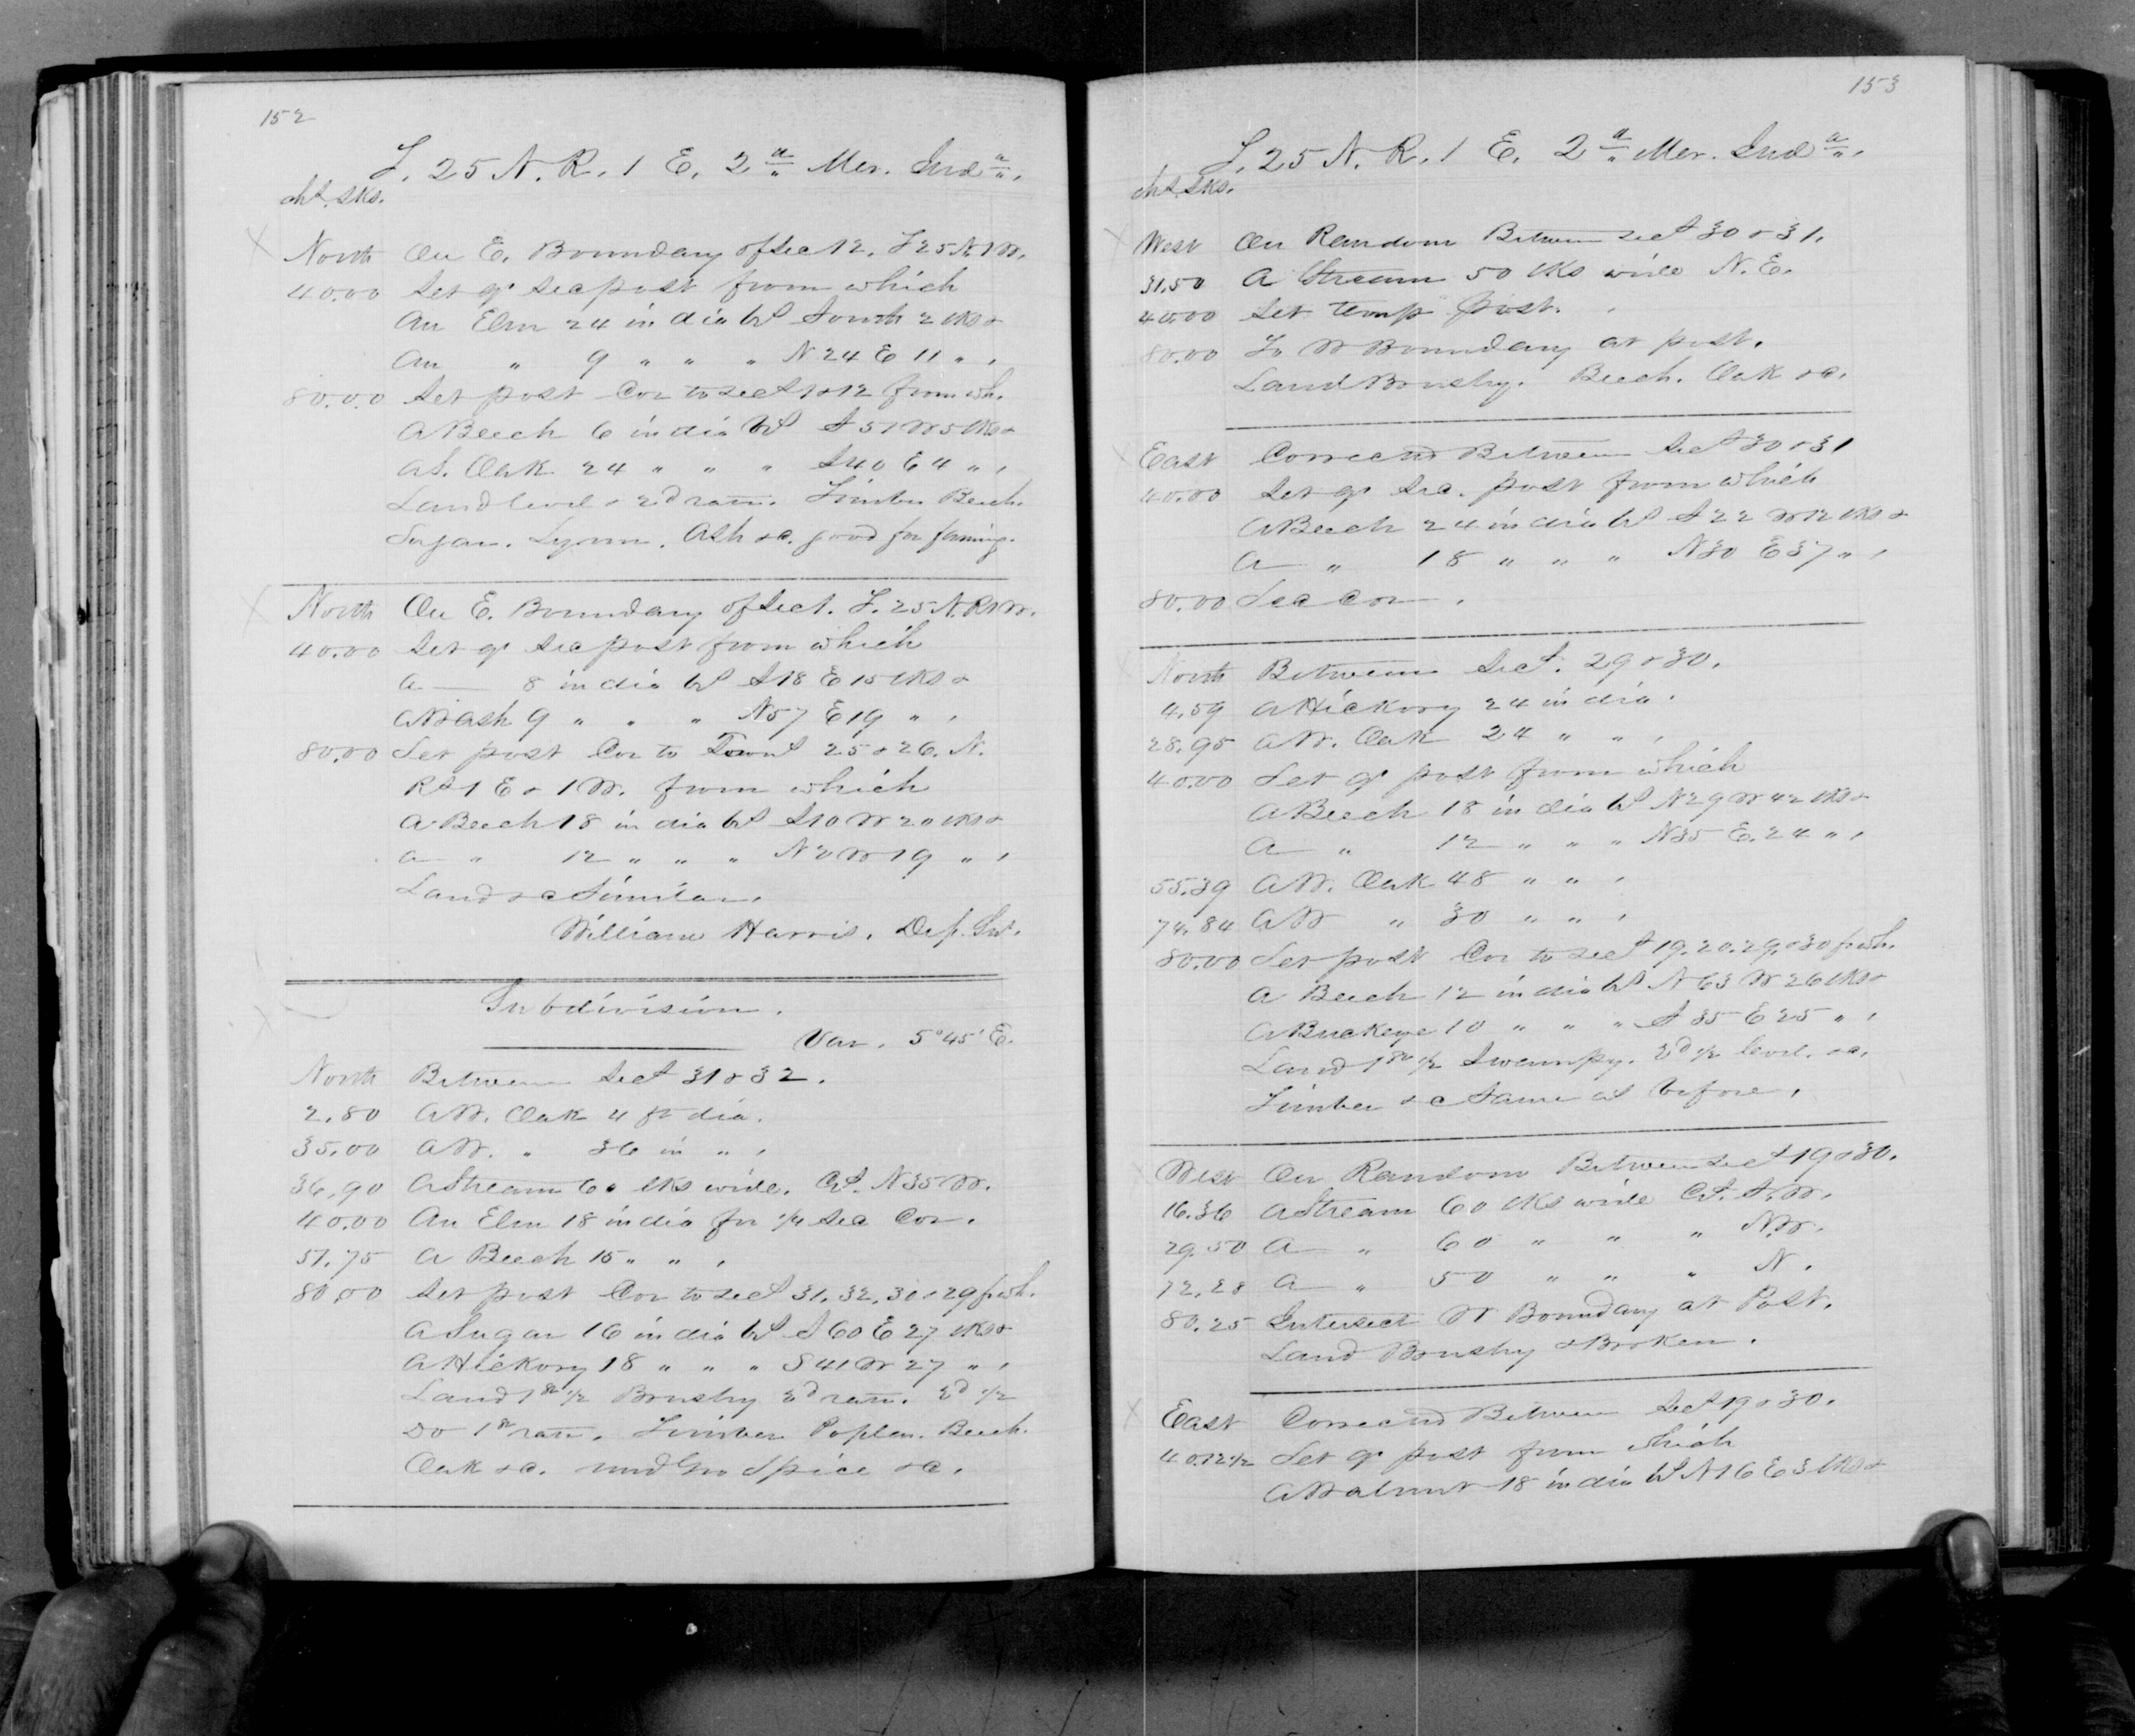 152
T. 25 N. R. 1 E. 2d Mer. Inda.
chs. lks.
North On E. Boundary of Sec 12. T 25 N. 1 W.
40.00 Set qr Sec post from which
An Elm 24 in dia brs South 2 lks &
An " 9 " " " N 24 E 11 " .
80.00 Set post Cor to secs 1 & 12 from wh.
A Beech 6 in dia brs S 51 W 5 lks &
A S. Oak 24 " " " S 40 E 4 " .
Land level & 2d rate. Timber Beech.
Sugar. Lynn. Ash &c. good for farming.
North On E. Boundary of Sec 1. T. 25 N. R 1 W.
40.00 Set qr Sec post from which
A — 8 in dia brs S 18 E 15 lks &
A W Ash 9 " " " N 57 E 19 " .
80.00 Set post Cor to Towns 25 & 26. N.
Rs 1 E & 1 W. from which
A Beech 18 in dia brs S 10 W 20 lks &
A " 12 " " " N 2 W 19 " .
Land &c Similar.
William Harris. Dep. Sur.
Subdivision.
Var. 5° 45' E.
North Between Secs 31 & 32.
2.80 A W. Oak 4 ft dia.
35.00 A W. " 36 in " .
36.90 A Stream 60 lks wide. Cs. N 35 W.
40.00 An Elm 18 in dia for 1/4 Sec Cor.
51.75 A Beech 15 " " .
80.00 Set post Cor to secs 31, 32, 30 & 29 f. wh.
A Sugar 16 in dia brs S 60 E 27 lks &
A Hickory 18 " " " S 41 W 27 " .
Land 1st 1/2 Brushy 2d rate. 2d 1/2
Do 1st rate. Timber Poplar. Beech.
Oak &c. und Gro Spice &c.
153
T. 25 N. R. 1 E. 2d Mer. Inda.
chs. lks.
West On Random Between secs 30 & 31.
31.50 A Stream 50 lks wide N. E.
40.00 Set temp post.
80.00 To W Boundary at post.
Land Brushy. Beech. Oak &c.
East Corrected Between Secs 30 & 31
40.00 Set qr Sec. post from which
A Beech 24 in dia brs S 22 W 12 lks &
A " 18 " " " N 30 E 37 " .
80.00 Sec Cor.
North Between Secs. 29 & 30.
4.59 A Hickory 24 in dia.
28.95 A W. Oak 24 " " .
40.00 Set qr post from which
A Beech 18 in dia brs N 29 W 42 lks &
A " 12 " " " N 35 E. 24 " .
55.39 A W. Oak 48 " " .
74.84 A W " 30 " " .
80.00 Set post Cor to secs 19. 20. 29. & 30 f wh.
A Beech 12 in dia brs N 63 W 26 lks &
A Buckeye 10 " " " S 35 E 25 " .
Land 1st 1/2 Swampy. 2d 1/2 level. &c.
Timber &c Same as before.
West On Random Between Secs 19 & 30.
16.36 A Stream 60 lks wide Cs. S. W.
29.50 A " 60 " " " N. W.
72.28 A " 50 " " " N.
80.25 Intersect W Boundary at Post.
Land Brushy & Broken.
East Corrected Between Secs 19 & 30.
40.12 1/2 Set qr post from which
A Walnut 18 in dia brs N 16 E 3 lks &